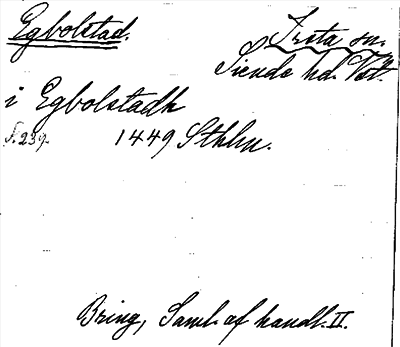 Egbolstad.
Irsta sn.
Siende hd. Vstm.
i Egbolstadh
s. 239. 1449 Sthlm.
Bring, Saml. af handl. II.